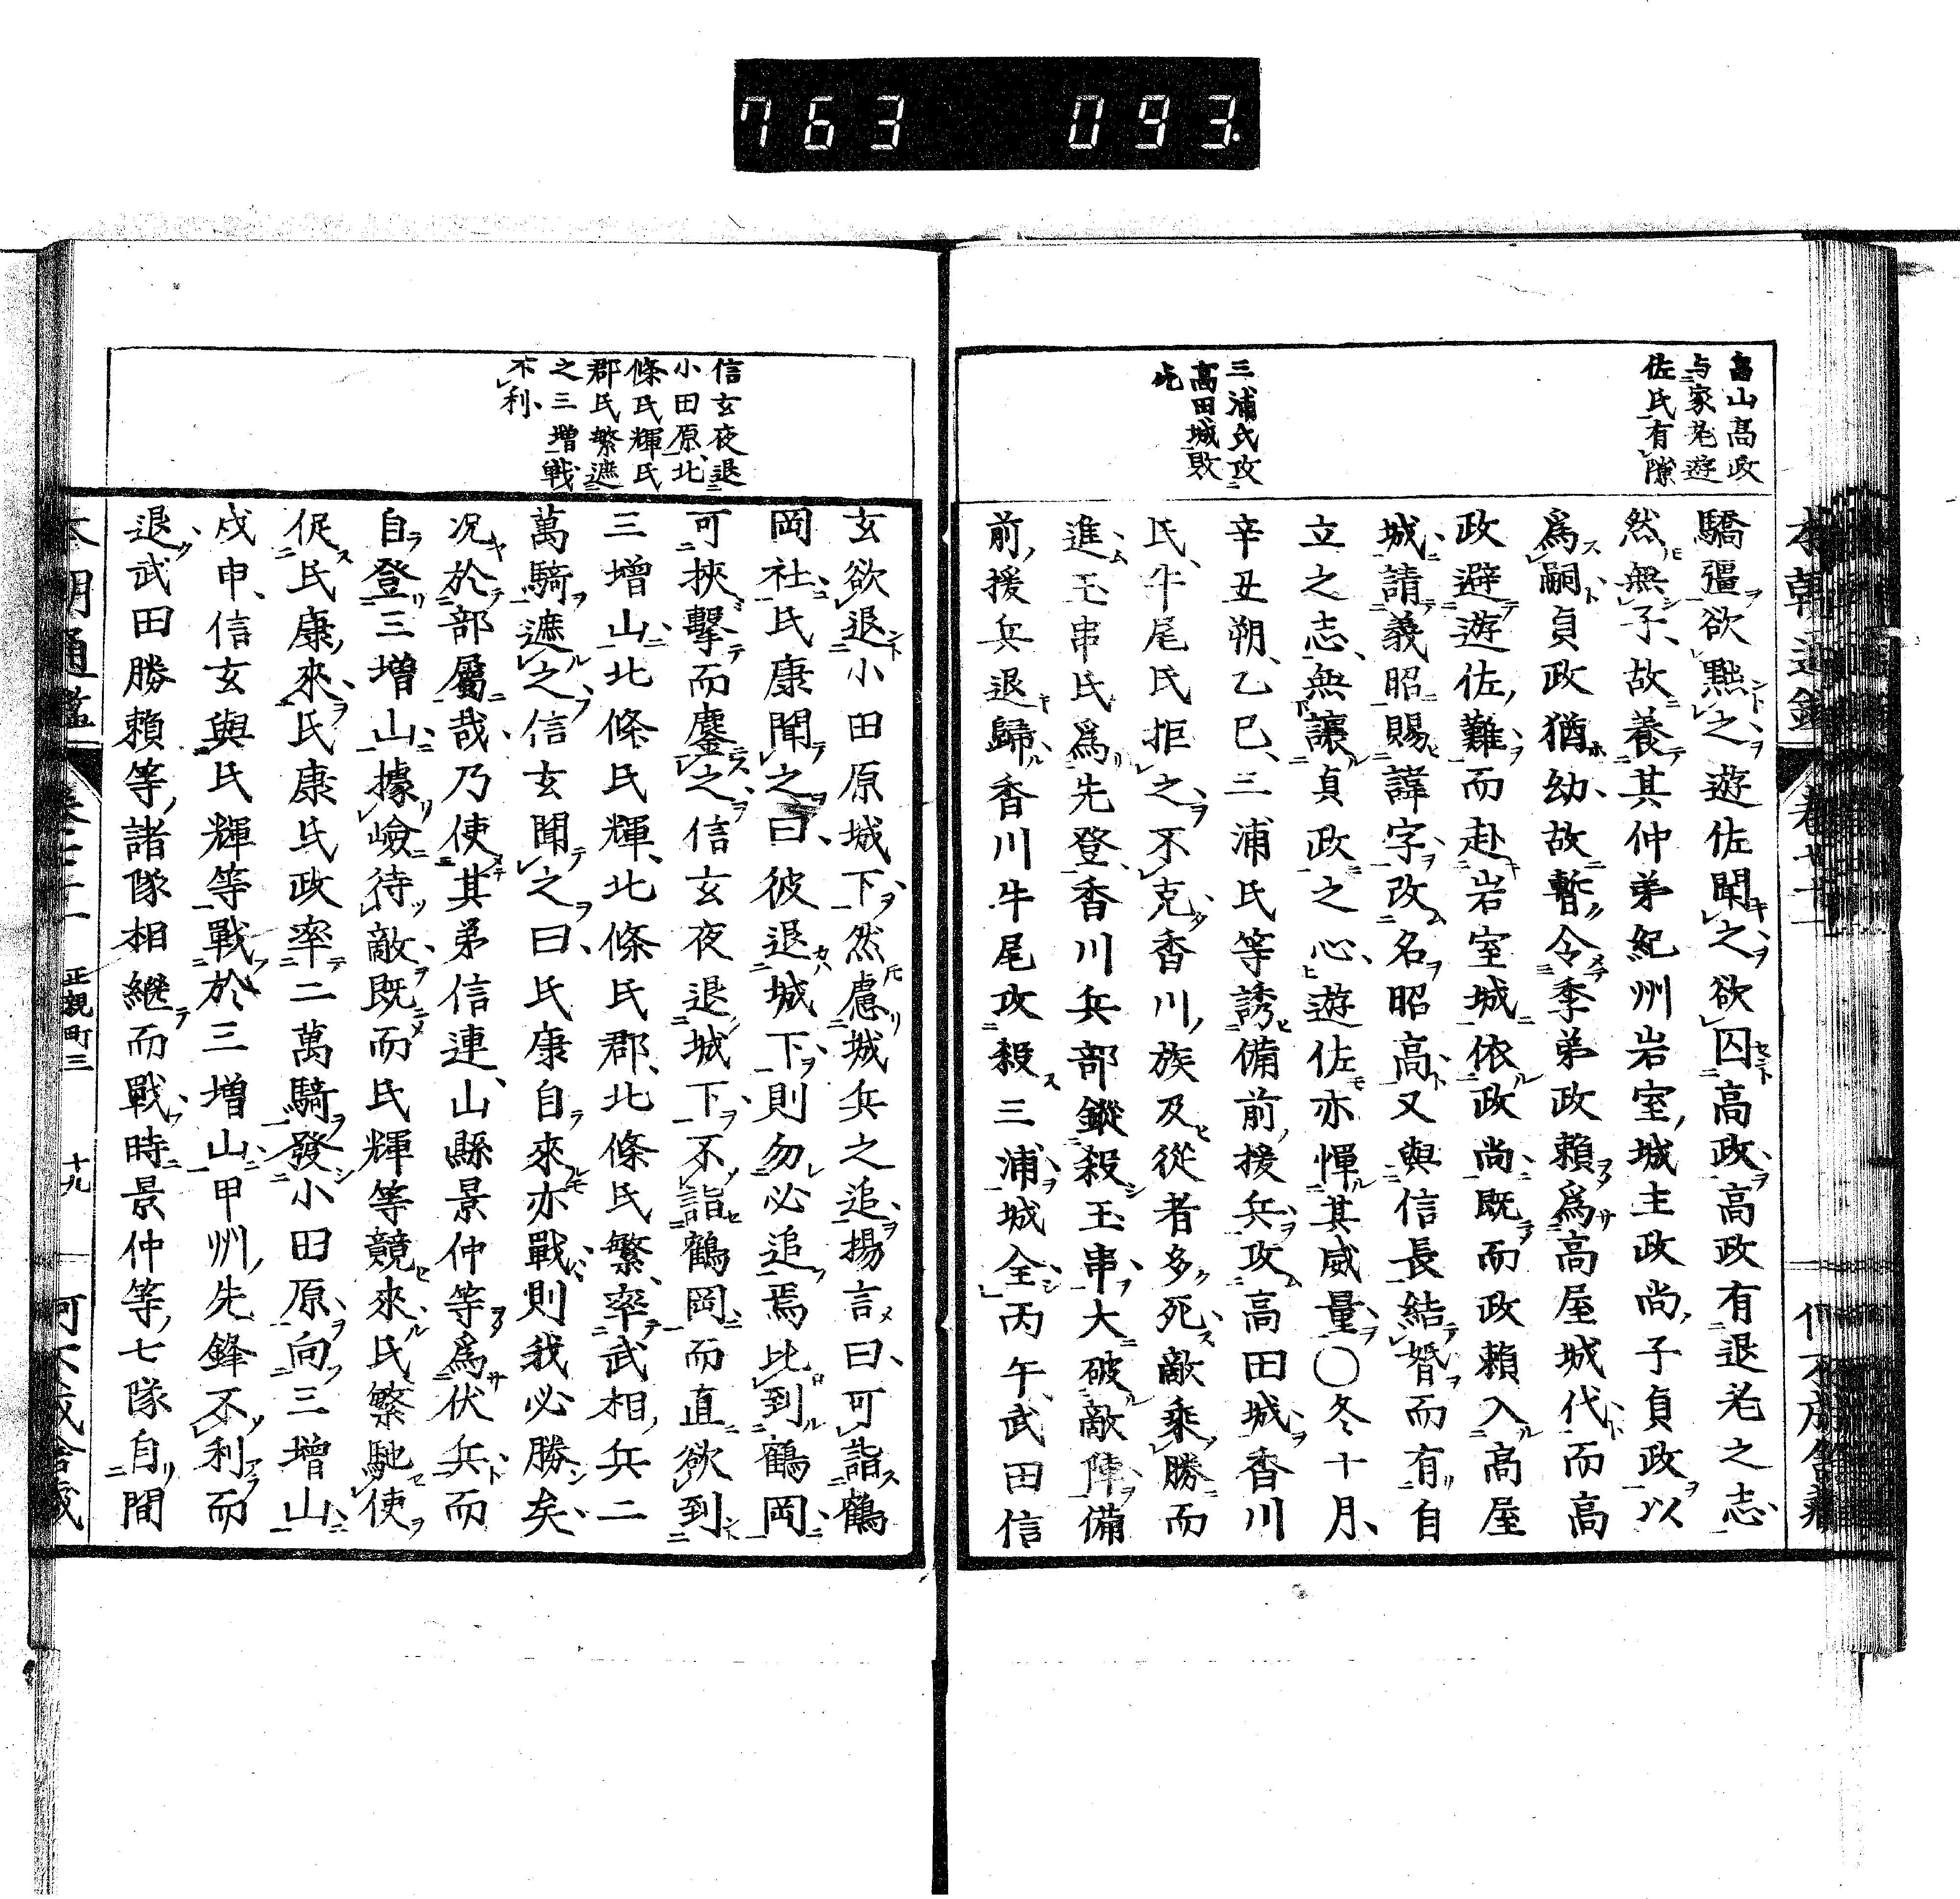 763 093
畠山高政
与家老遊
佐氏有隙
三浦氏攻
高田城敗
北
驕彊欲黜之遊佐聞之欲囚高政高政有退老之志
然無子故養其仲弟紀州岩室城主政尚子貞政以
爲嗣貞政猶幼故暫令季弟政賴爲高屋城代而高
政避遊佐難而赴岩室城依政尚既而政賴入高屋
城請義昭賜諱字改名昭高又與信長結婚而有自
立之志無讓貞政之心遊佐亦憚其威量〇冬十月
辛丑朔乙巳三浦氏等誘備前援兵攻高田城香川
氏牛尾氏拒之不克香川族及從者多死敵乘勝而
進玉串氏爲先登香川兵部鏦殺玉串大破敵陣備
前援兵退歸香川牛尾攻殺三浦城全丙午武田信
信玄夜退
小田原北
條氏輝氏
郡氏繁遮
之三增戰
不利
玄欲退小田原城下然慮城兵之追揚言曰可詣鶴
岡社氏康聞之曰彼退城下則勿必追焉比到鶴岡
可挾擊而鏖之信玄夜退城下不詣鶴岡而直欲到
三增山北條氏輝北條氏郡北條氏繁率武相兵二
萬騎遮之信玄聞之曰氏康自來亦戰則我必勝矣
况於部屬哉乃使其弟信連山縣景仲等爲伏兵而
自登三增山據嶮待敵既而氏輝等競來氏繁馳使
促氏康來氏康氏政率二萬騎發小田原向三增山
戊申信玄與氏輝等戰於三增山甲州先鋒不利而
退武田勝賴等諸隊相繼而戰時景仲等七隊自間
本朝通鑑 正親町三 十九